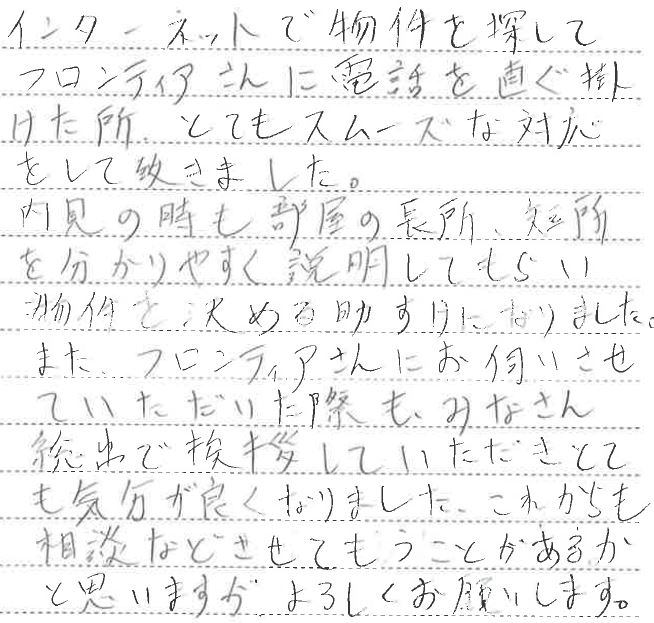 インターネットで物件を探して
フロンティアさんに電話を直ぐ掛
けた所、とてもスムーズな対応
をして致きました。
内見の時も部屋の長所、短所
を分かりやすく説明してもらい
物件を決める助すけになりました。
また、フロンティアさんにお伺いさせ
ていただいた際も、みなさん
総出で挨拶していただきとて
も気分が良くなりました。これからも
相談などさせてもうことがあるか
と思いますが、よろしくお願いします。